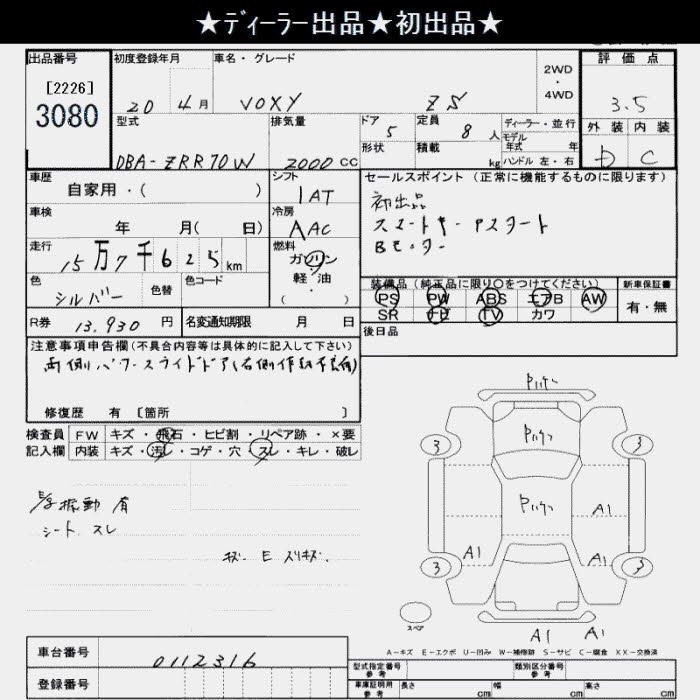 ★ディーラー出品★初出品★
出品番号
[2226]
3080
初度登録年月
20 4月
車名・グレード
VOXY ZS
2WD
・
4WD
評価点
3.5
外装 内装
D C
型式
DBA-ZRR70W
排気量
2000 CC
ドア
5
定員
8 人
形状
積載
kg
ディーラー・並行
モデル
年式 年
ハンドル 左・右
車歴
自家用・( )
シフト
IAT
セールスポイント (正常に機能するものに限ります)
初出品
スマートキー Pスタート
Bモニター
車検
年 月( 日)
冷房
AAC
走行
15万7千625km
燃料
ガソリン
軽・油
・
( )
色
シルバー
色替
色コード
装備品(純正品に限り○をつけてください)
PS PW ABS エアB AW
SR ナビ TV カワ
新車保証書
有・無
R券 13,930 円
名変通知期限 月 日
後日品
注意事項申告欄(不具合内容等は具体的に記入して下さい)
両側パワースライドドア(右側作動不良有)
修復歴 有 [箇所 ]
検査員
記入欄
FW キズ・飛石・ヒビ割・リペア跡・×要
内装 キズ・汚レ・コゲ・穴・スレ・キレ・破レ
振動 有
シート スレ
キズ E スリキズ.
Pハゲ
3
Pハゲ
3
Pハゲ
A1
A1
A1
3
3
スペア
A1
A1
A-キズ E-エクボ U-凹み W-補修跡 S-サビ C-腐食 XX-交換済
車台番号
0112316
登録番号
型式指定番号
参考
類別区分番号
参考
車庫証明用
参考
長さ cm
幅 cm
高さ cm